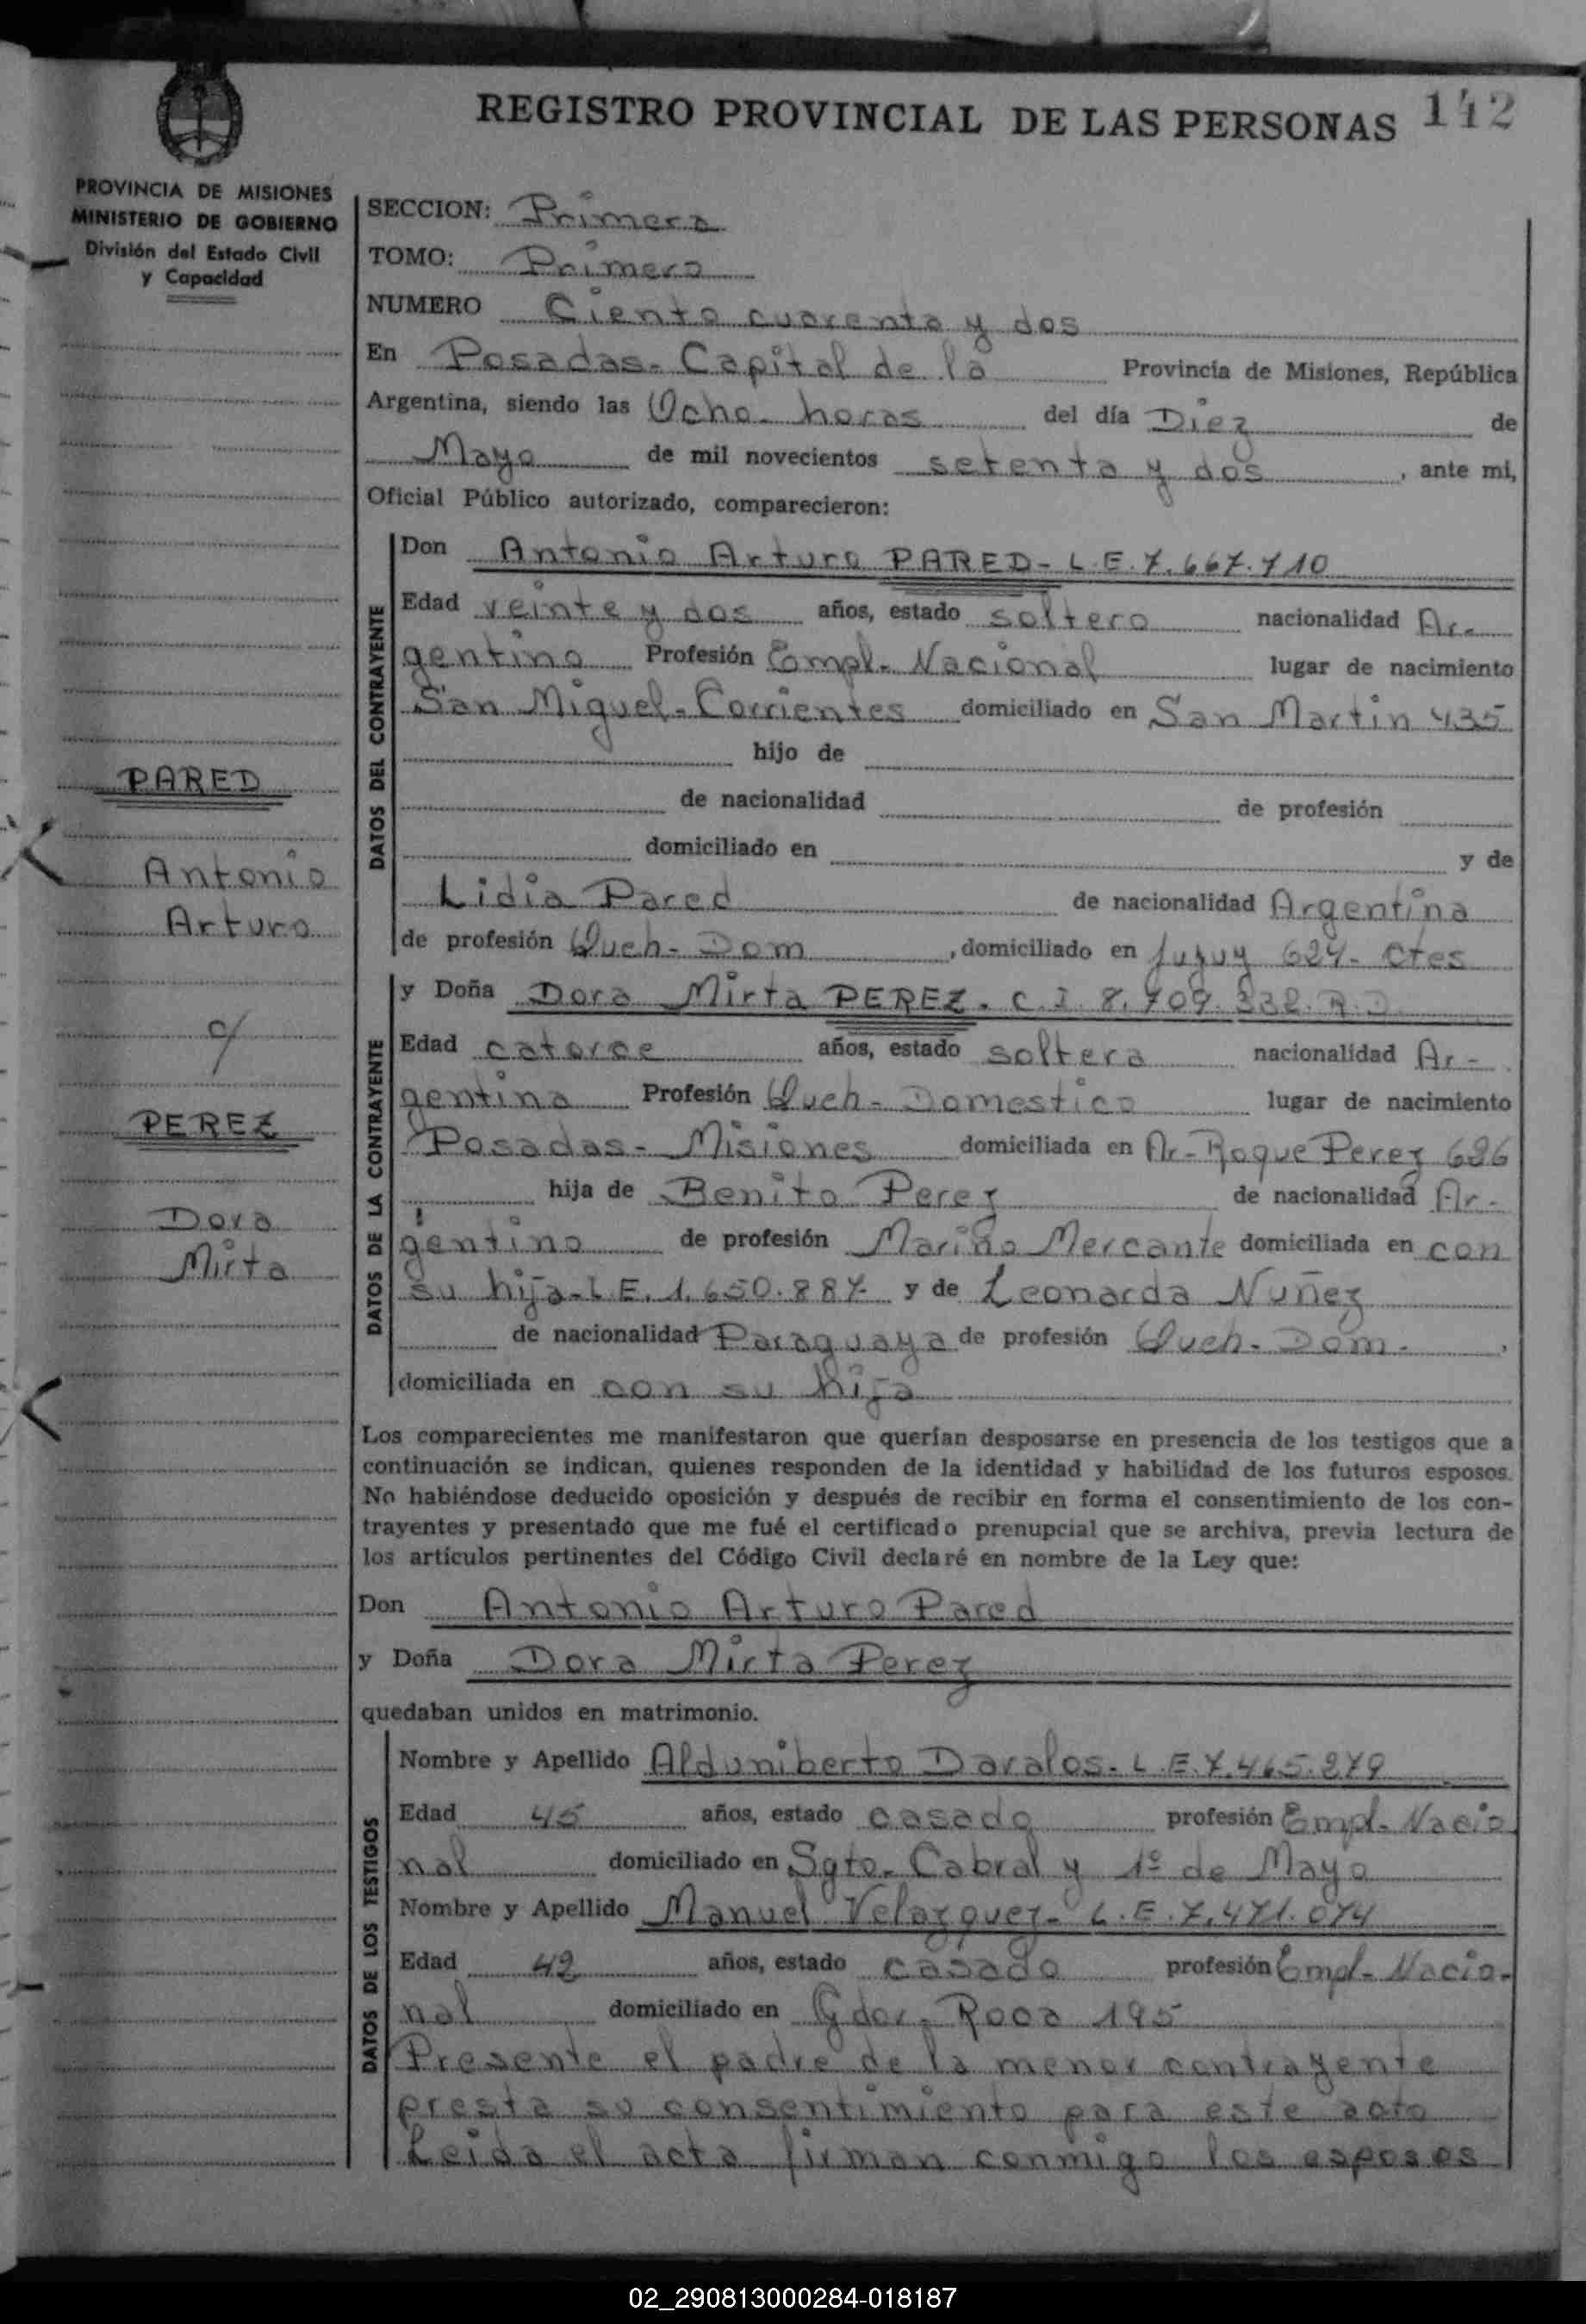 REGISTRO PROVINCIAL DE LAS PERSONAS 142
PROVINCIA DE MISIONES
MINISTERIO DE GOBIERNO
División del Estado Civil
y Capacidad
SECCION: Primera
TOMO: Primero
NUMERO Ciento cuarenta y dos
En Posadas- Capital de la Provincia de Misiones, República
Argentina, siendo las Ocho- horas del día Diez de
Mayo de mil novecientos setenta y dos, ante mi,
Oficial Público autorizado, comparecieron:
DATOS DEL CONTRAYENTE
Don Antonio Arturo PARED- L.E. 7.667.710
Edad veinte y dos años, estado soltero nacionalidad Ar-
gentino Profesión Empl- Nacional lugar de nacimiento
San Miguel- Corrientes domiciliado en San Martin 435
hijo de
de nacionalidad de profesión
domiciliado en y de
Lidia Pared de nacionalidad Argentina
de profesión Queh- Dom, domiciliado en Jujuy 624- Ctes
PARED
Antonio
Arturo
c/
PEREZ
Dora
Mirta
DATOS DE LA CONTRAYENTE
y Doña Dora Mirta PEREZ- C.I. 8.709.332.
Edad catorce años, estado soltera nacionalidad Ar-
gentina Profesión Queh- Domestico lugar de nacimiento
Posadas- Misiones domiciliada en Av- Roque Perez 686
hija de Benito Perez de nacionalidad Ar-
gentino de profesión Marino Mercante domiciliada en con
su hija- L.E. 1.650.887- y de Leonarda Nuñez
de nacionalidad Paraguaya de profesión Queh- Dom-,
domiciliada en con su hija
Los comparecientes me manifestaron que querían desposarse en presencia de los testigos que a
continuación se indican, quienes responden de la identidad y habilidad de los futuros esposos.
No habiéndose deducido oposición y después de recibir en forma el consentimiento de los con-
trayentes y presentado que me fué el certificado prenupcial que se archiva, previa lectura de
los artículos pertinentes del Código Civil declaré en nombre de la Ley que:
Don Antonio Arturo Pared
y Doña Dora Mirta Perez
quedaban unidos en matrimonio.
DATOS DE LOS TESTIGOS
Nombre y Apellido Alduniberto Davalos- L.E. 7.465.279
Edad 45 años, estado casado profesión Empl- Nacio
nal domiciliado en Sgto- Cabral y 1º de Mayo
Nombre y Apellido Manuel Velazquez- L.E. 7.471.074
Edad 42 años, estado casado profesión Empl- Nacio-
nal domiciliado en Gdor- Roca 195
Presente el padre de la menor contrayente
presta su consentimiento para este acto
Leida el acta firman conmigo los esposos
02_290813000284-018187